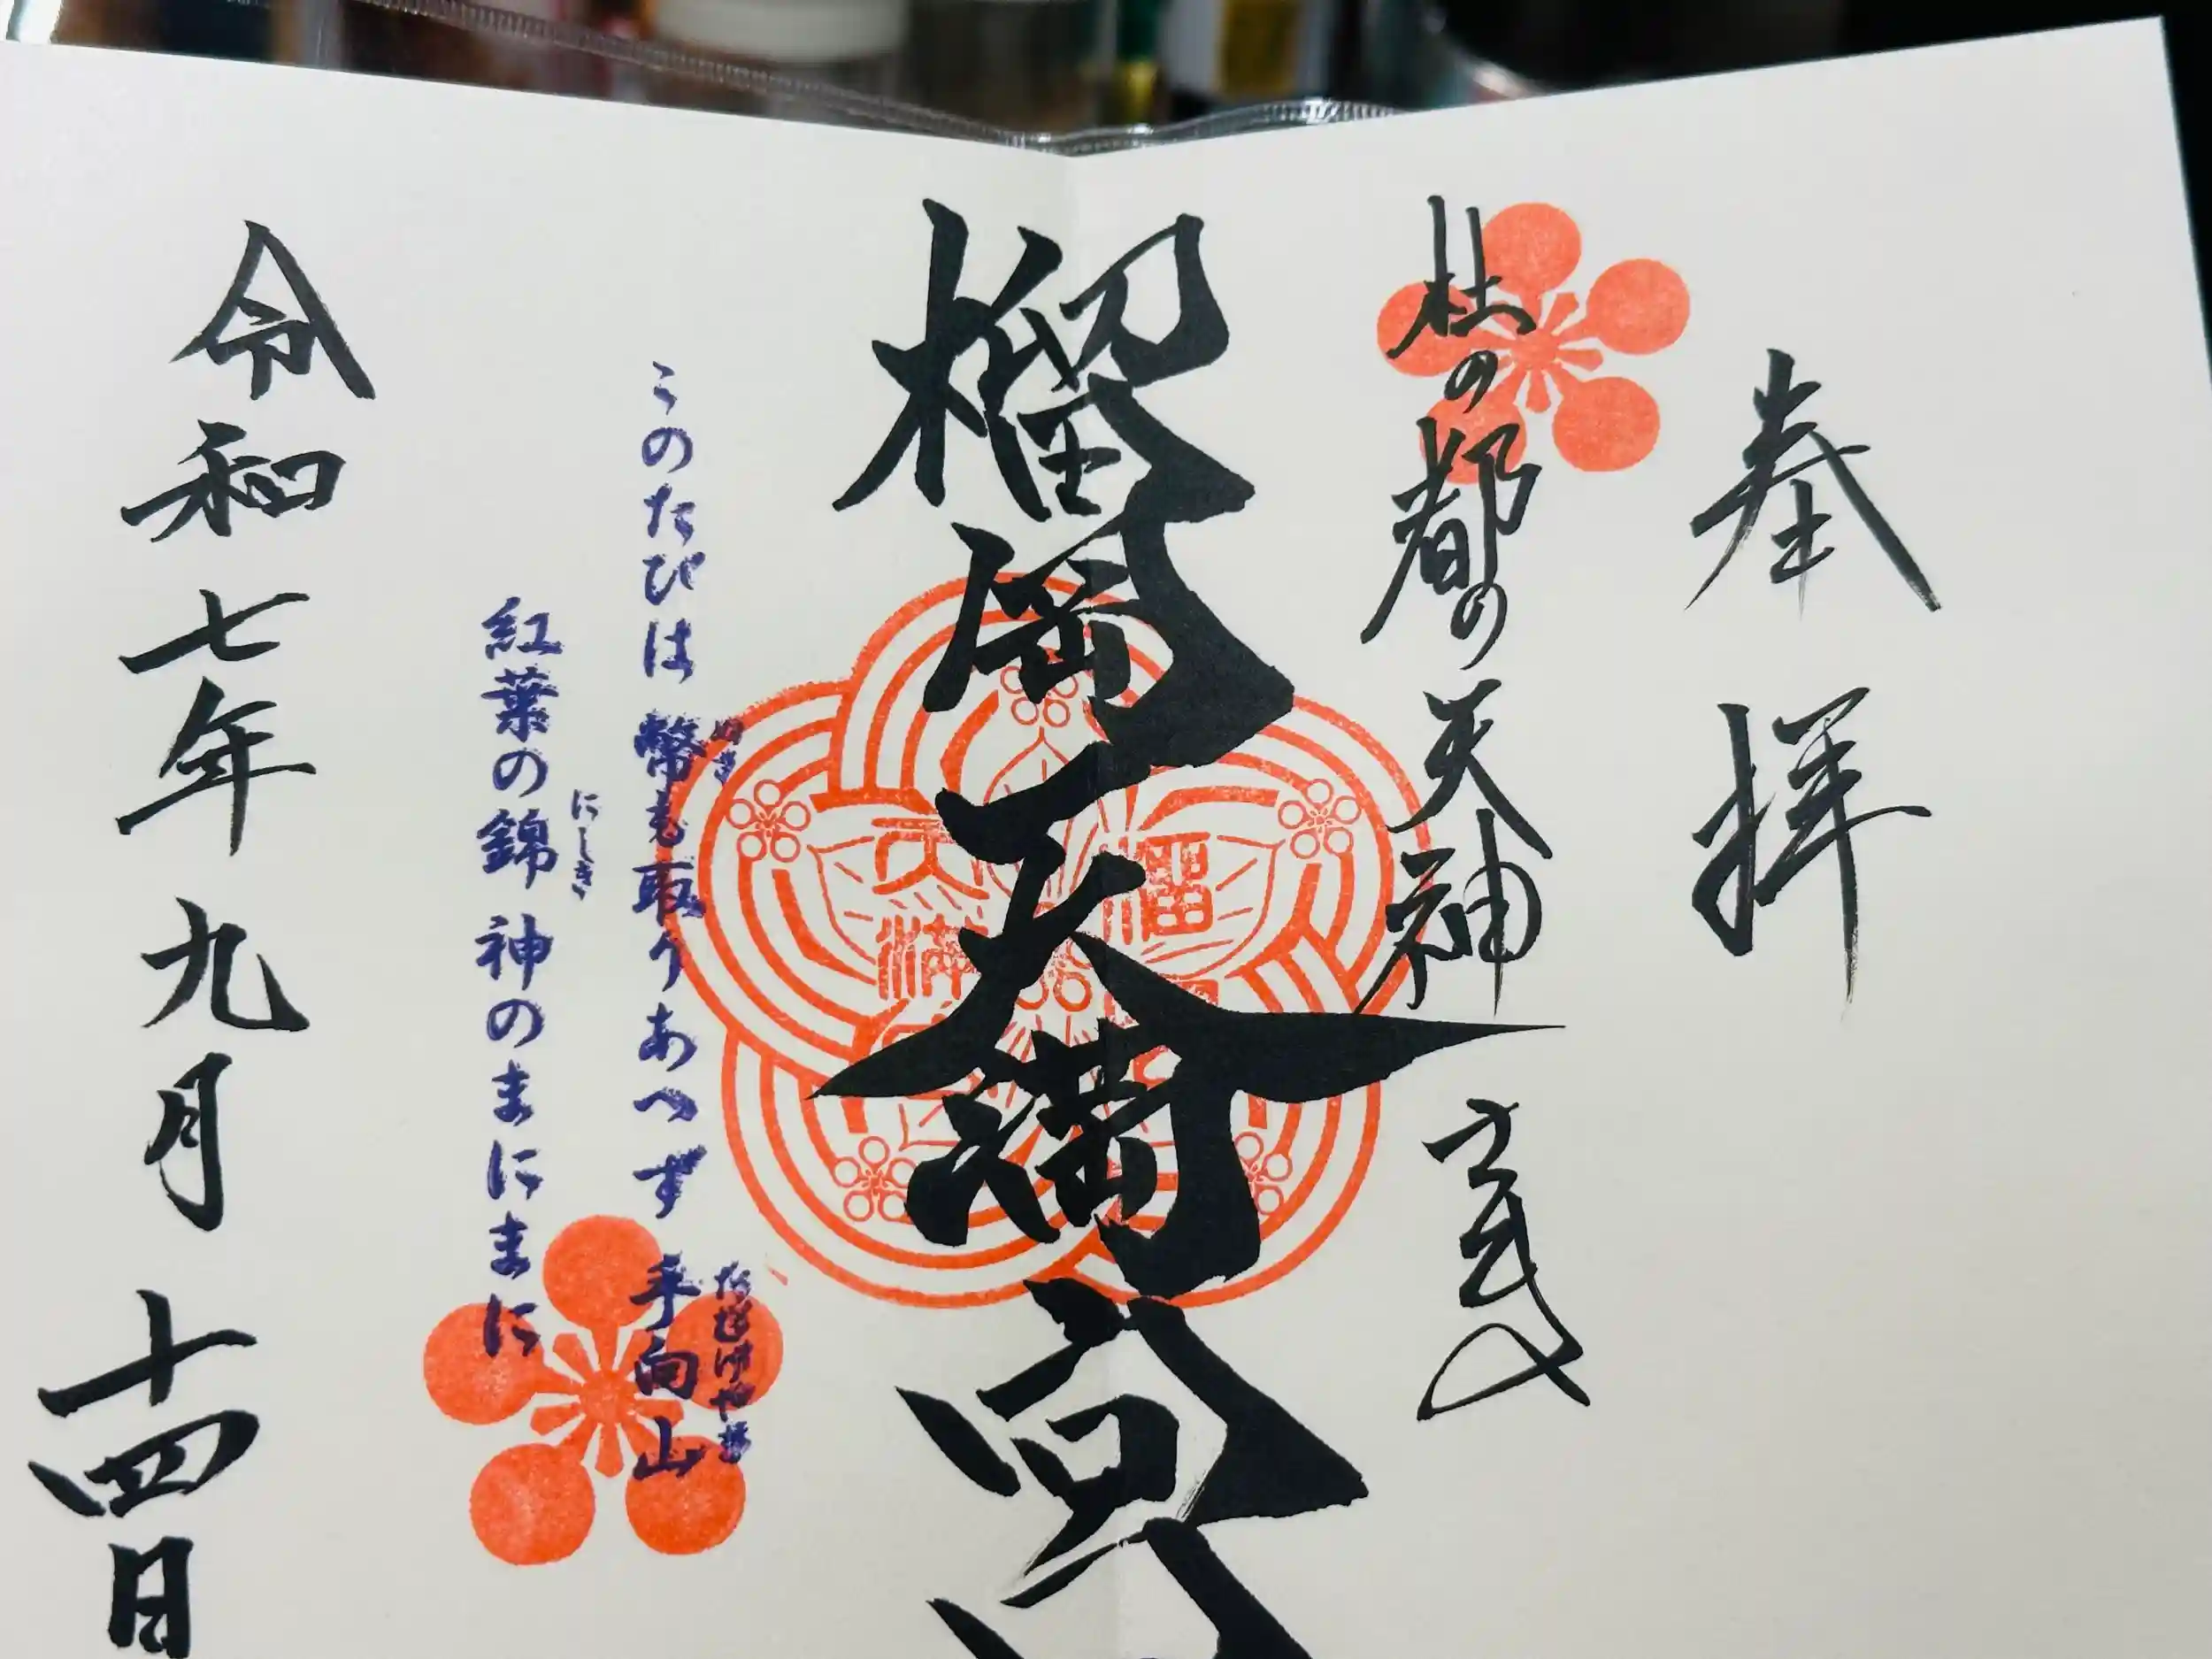 奉拝
杜の都の天神さま
榴岡天満宮
このたびは 幣も取りあへず 手向山
ぬさ
たむけやま
紅葉の錦 神のまにまに
にしき
令和七年 九月 十四日